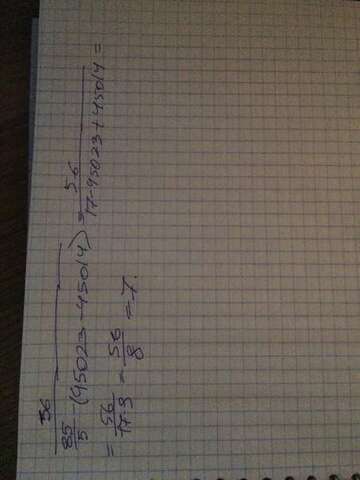 56 / (85/5 - (45023 - 45014)) = 56 / (17-45023+45014) =
= 56/(17-9) = 56/8 = 7.